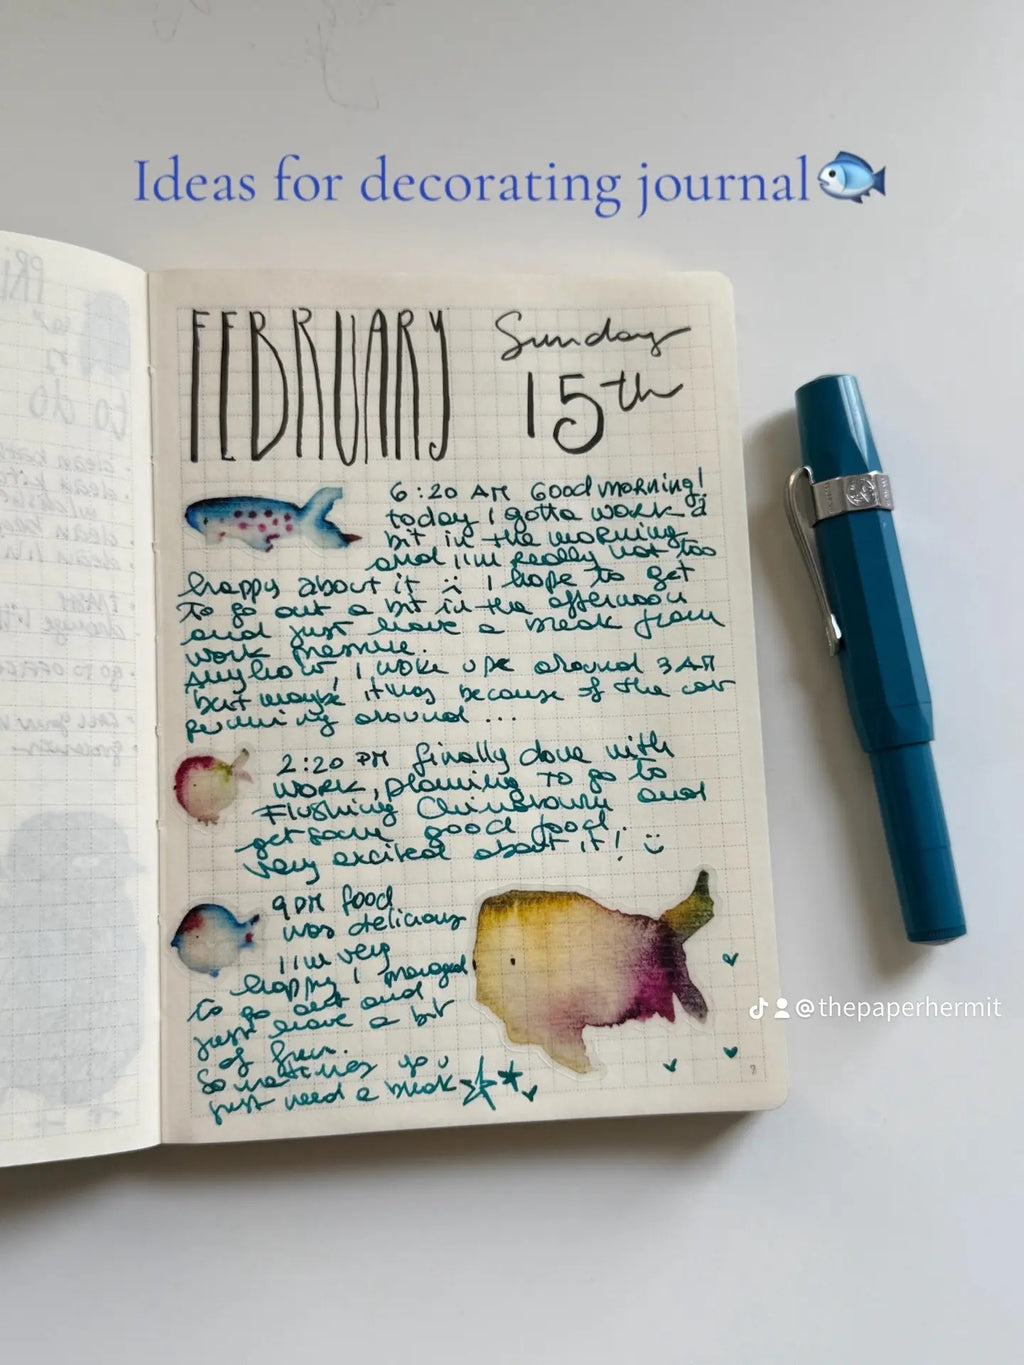 Ideas for decorating journal🐟
FEBRUARY
Sunday
15th
6:20 AM Good morning!
today I gotta work a
bit in the morning
and I'm really not too
happy about it :( I hope to get
to go out a bit in the afternoon
and just have a break from
work pressure.
Anyhow, I woke up around 3 AM
but maybe it was because of the cat
running around...
2:20 PM finally done with
work, planning to go to
Flushing Chinatown and
get some good food.
very excited about it! :)
9 PM food
was delicious
I'm very
happy I managed
to go out and
just have a bit
of fun.
Sometimes you
just need a break
@thepaperhermit
to do